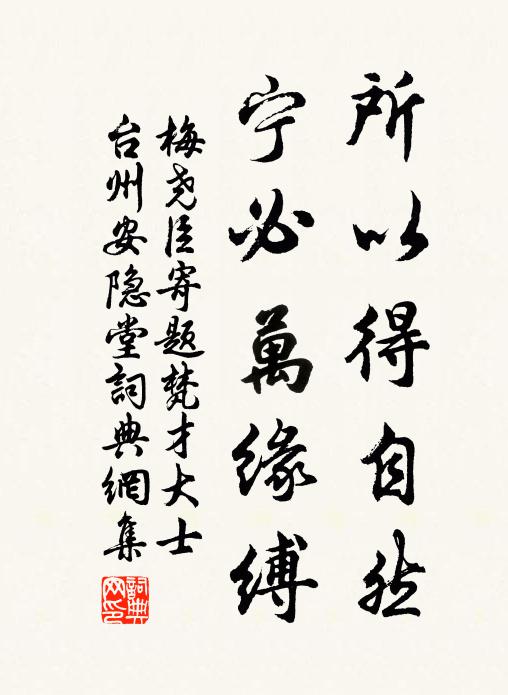 所以得自然
宁必萬緣縛
梅尧臣寄題梵才大士
台州安隐堂詞典網集
詞典網印